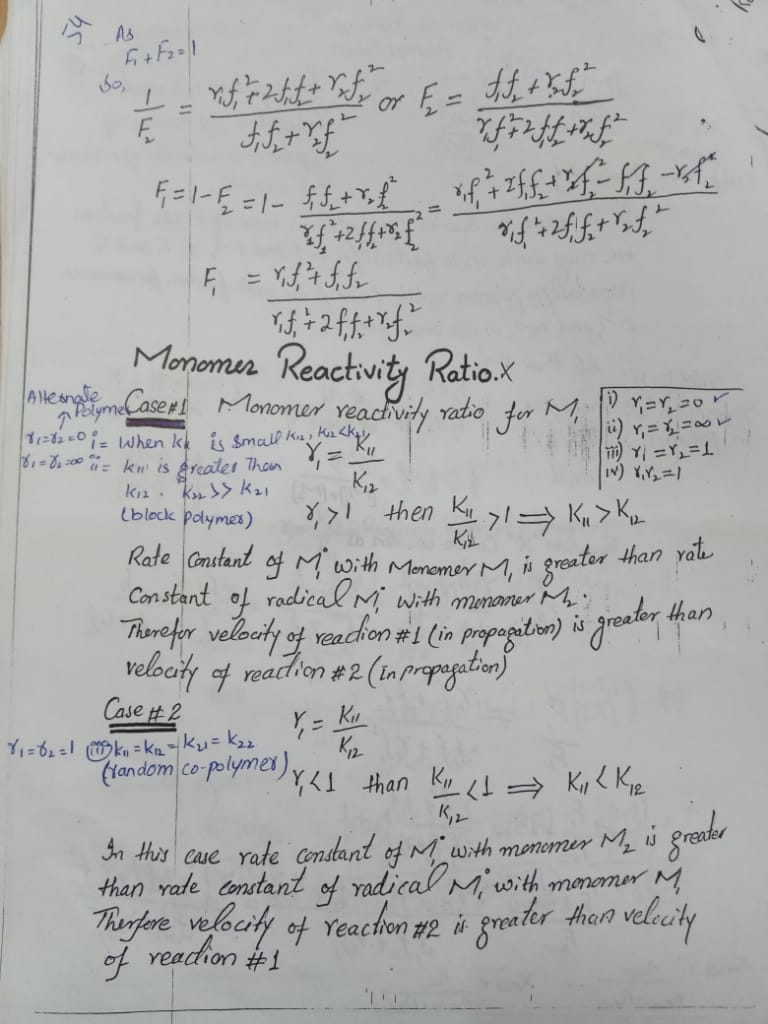 As
F₁ + F₂ = 1
So,
1/F₂ = (r₁f₁² + 2f₁f₂ + r₂f₂²)/(f₁f₂ + r₂f₂²) or F₂ = (f₁f₂ + r₂f₂²)/(r₁f₁² + 2f₁f₂ + r₂f₂²)
F₁ = 1 - F₂ = 1 - (f₁f₂ + r₂f₂²)/(r₁f₁² + 2f₁f₂ + r₂f₂²) = (r₁f₁² + 2f₁f₂ + r₂f₂² - f₁f₂ - r₂f₂²)/(r₁f₁² + 2f₁f₂ + r₂f₂²)
F₁ = (r₁f₁² + f₁f₂)/(r₁f₁² + 2f₁f₂ + r₂f₂²)
Monomer Reactivity Ratio. X
Alternate
Polymer
Case #1 Monomer reactivity ratio for M₁
i) r₁ = r₂ = 0 ✓
ii) r₁ = r₂ = ∞ ✓
iii) r₁ = r₂ = 1
iv) r₁r₂ = 1
r₁=r₂=0 i = When k₁₁ is small k₁₂,
r₁=r₂=∞ ii = k₁₁ is greater Than
k₁₂. k₂₂ >> k₂₁
(block polymer)
r₁ = K₁₁/K₁₂
r₁ > 1 then K₁₁/K₁₂ > 1 ⟹ K₁₁ > K₁₂
Rate Constant of M₁• with Monomer M₁ is greater than rate
Constant of radical M₁• with monomer M₂.
Therefor velocity of reaction #1 (in propagation) is greater than
velocity of reaction #2 (in propagation)
Case #2
r₁ = K₁₁/K₁₂
r₁=r₂=1 (iii) k₁₁ = k₁₂ = k₂₁ = k₂₂
(random co-polymer)
r₁ < 1 than K₁₁/K₁₂ < 1 ⟹ K₁₁ < K₁₂
In this case rate constant of M₁• with monomer M₂ is greater
than rate constant of radical M₁• with monomer M₁
Therfore velocity of reaction #2 is greater than velocity
of reaction #1